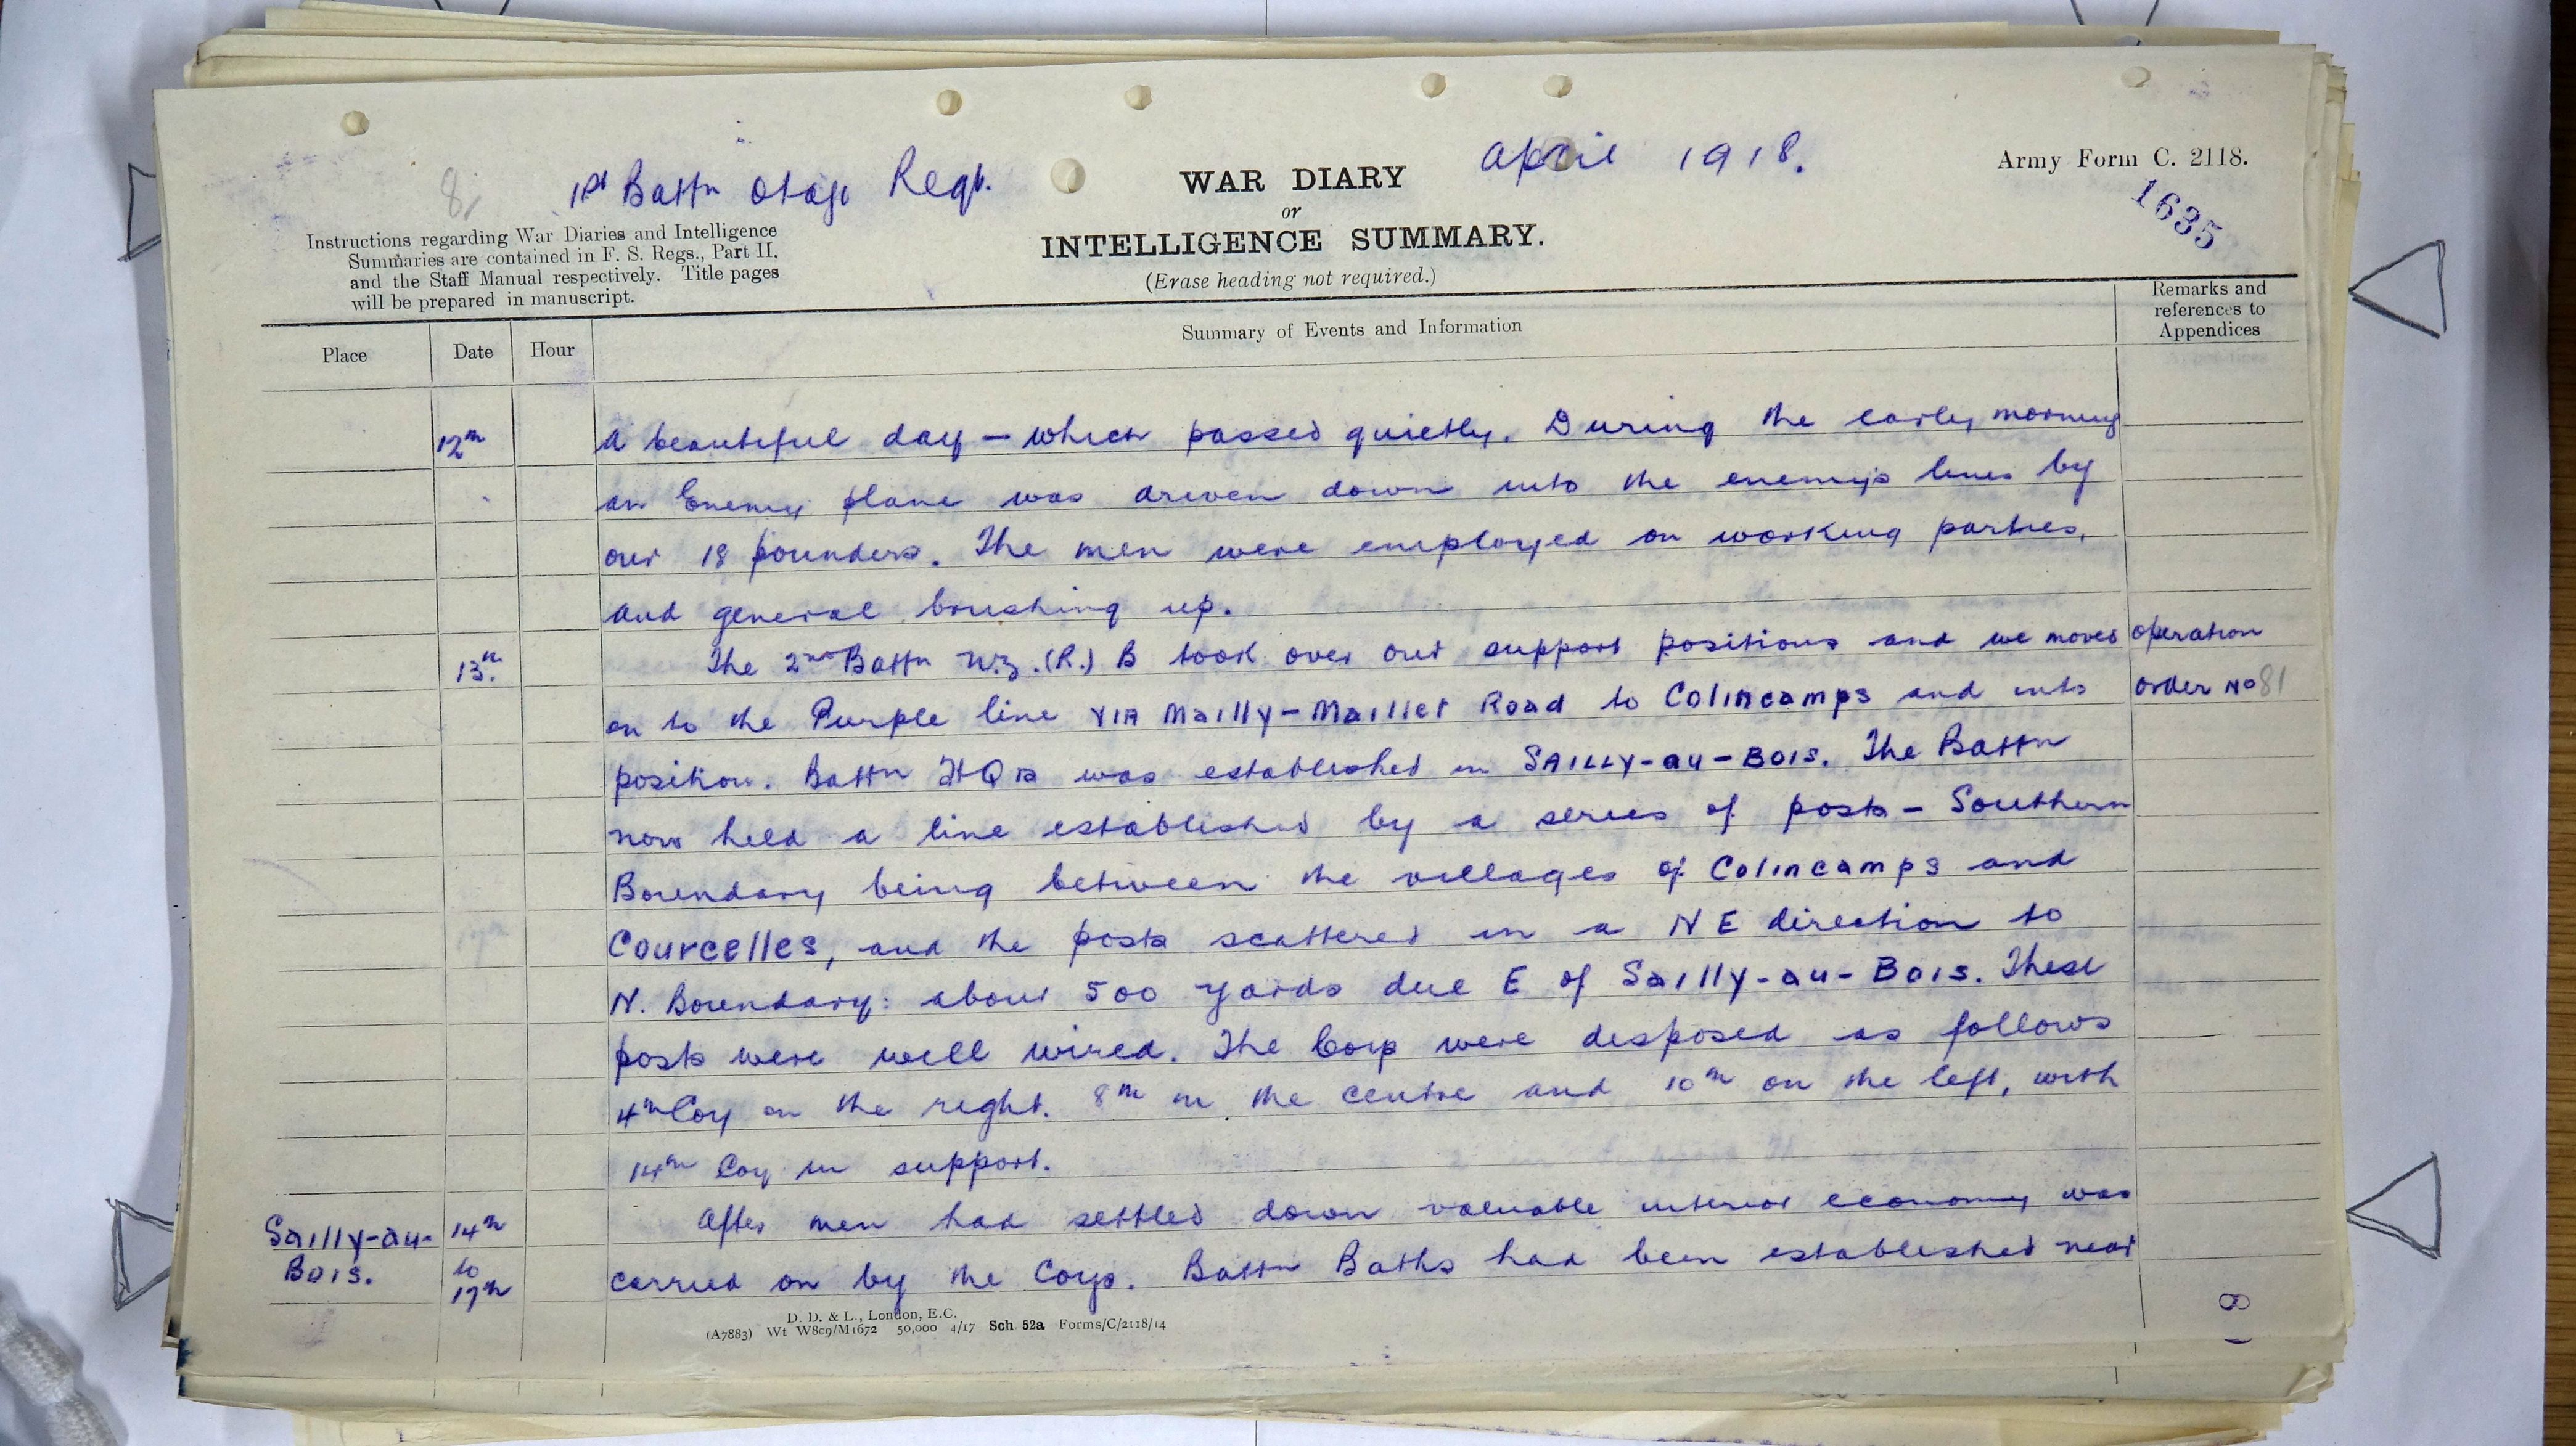 8.
1st Battn Otago Regt.
WAR DIARY
or
INTELLIGENCE SUMMARY.
(Erase heading not required.)
April 1918.
Army Form C. 2118.
1635
Instructions regarding War Diaries and Intelligence
Summaries are contained in F. S. Regs., Part II,
and the Staff Manual respectively. Title pages
will be prepared in manuscript.
Place Date Hour Summary of Events and Information Remarks and references to Appendices
12th A beautiful day – which passed quietly. During the early morning
an Enemy plane was driven down into the enemy's lines by
our 18 pounders. The men were employed on working parties,
and general brushing up.
13th. The 2nd Battn N.Z.(R.) B took over our support positions and we moved operation
on to the Purple line VIA Mailly-Maillet Road to Colincamps and into order No 81
position. Battn HQrs was established in SAILLY-au-BOIS. The Battn
now held a line established by a series of posts – Southern
Boundary being between the villages of Colincamps and
Courcelles, and the posts scattered in a NE direction to
N. Boundary: about 500 yards due E of Sailly-au-Bois. These
posts were well wired. The Coys were disposed as follows
4th Coy on the right. 8th in the centre and 10th on the left, with
14th Coy in support.
Sailly-au- 14th After men had settled down valuable interior economy was
Bois. to 17th carried on by the Coys. Battn Baths had been established near
D. D. & L., London, E.C.
(A7883) Wt W809/M1672 50,000 4/17 Sch 52a Forms/C/2118/14